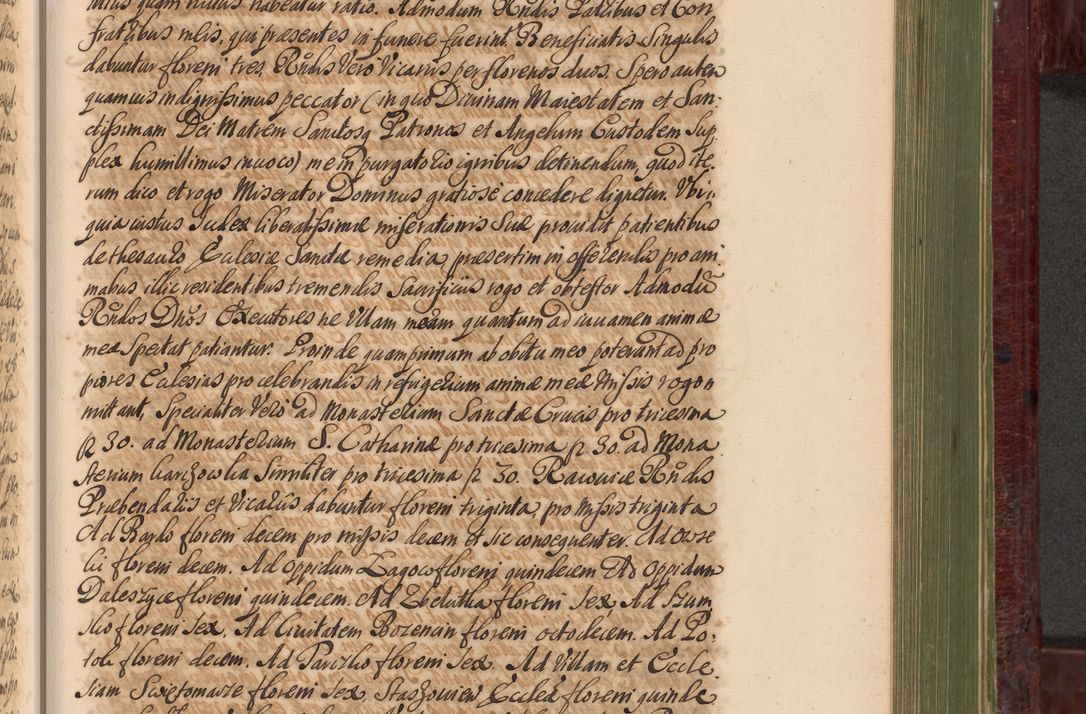 nius quam nudus habeatur ratio. Admodum Rńdis Patribus et Con
fratribus meis, qui præsentes in funere fuerint. Beneficiatis Singulis
dabuntur floreni tres. Rńdis Vero Vicariis per florenos duos. Spero autem
quamuis indignissimus peccator (in quo Diuinam Maiestatem et San:
ctissimam Dei Matrem Sanctosq Patronos et Angelum Custodem Sup
plex humillimus inuoco) me in purgatorio ignibus detinendum, quod ite
rum dico et rogo Miserator Dominus gratiosè concedere dignetur. Vbi,
quia iustus Judex liberalissimæ miserationis Suæ prouidit patientibus
de thesauro Ecclesiæ Sanctæ remedia præsertim in offerendis pro ani
mabus illic residentibus tremendis Sacrificiis rogo et obtestor Admodū
Rńdos Dnos Executores ne Vllam meam quantum ad iuuamen animæ
meæ Spectat patiantur. Proinde quamprimum ab obitu meo poterunt ad pro
piores Ecclesias pro celebrandis in refrigerium animæ meæ Missis rogo
mittant, Specialiter Vero ad Monasterium Sanctæ Crucis pro tricesima
p 30. ad Monasterium S. Catharinæ pro tricesima p 30. ad Mona
sterium Karczowka Similiter pro tricesima p 30. Racouiæ Rńdis
Præbendariis et Vicariis dabuntur floreni triginta, pro Missis triginta
Ad Bardo floreni decem pro missis decem et sic consequenter. Ad
floreni decem. Ad Oppidum Łagoco floreni quindecem Ad Oppidum
Daleszyce floreni quindecem. Ad Zbelutka floreni Sex, Ad Szum
sko floreni Sex, Ad Ciuitatem Bozencin floreni octodecem. Ad Po:
tok floreni decem. Ad Parczko floreni Sex. Ad Villam et Eccle
siam Swietomarze floreni Sex, Staszouien Eccleæ floreni quinde